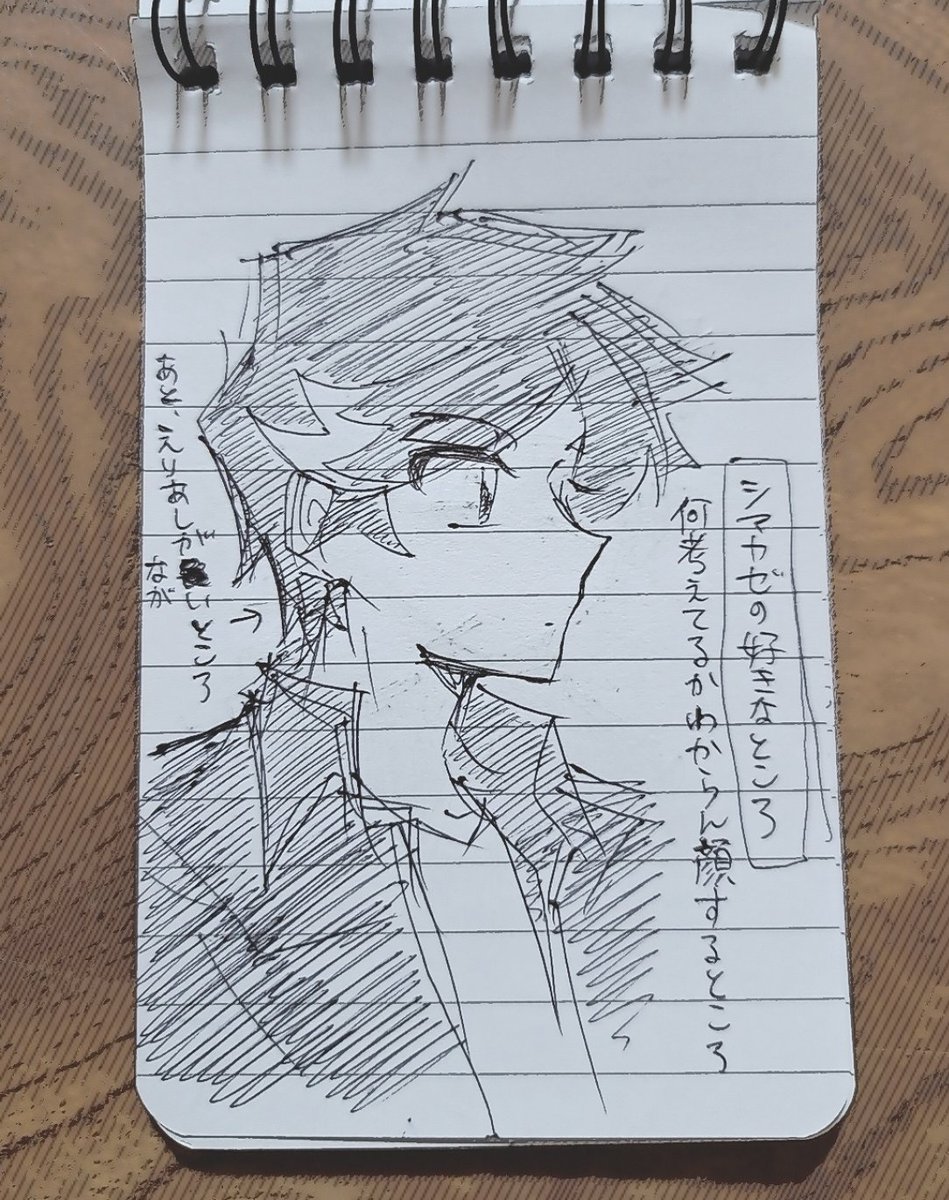 シマカゼの好きなところ
何考えてるかわからん顔するところ
あと、えりあしが
ながいところ